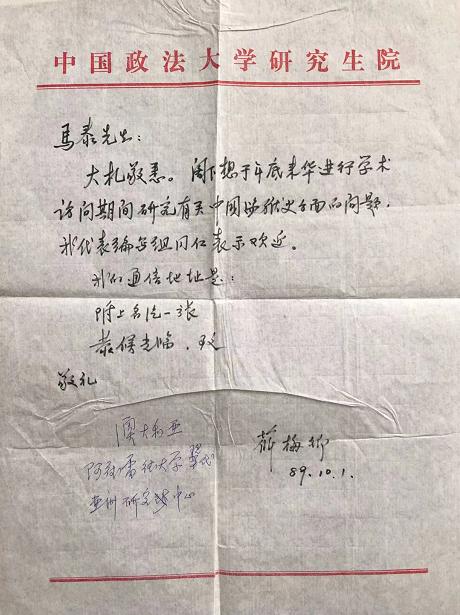 中国政法大学研究生院
馬泰先生：
大札敬悉。阁下想于年底来华进行学术
访问期间研究有关中国监狱史方面的问题，
我代表编写组同仁表示欢迎。
我的通信地址是：
附上名片一张
恭候光临。致
敬礼
薛梅卿
89.10.1.
澳大利亚
阿得雷德大学
亚州研究中心